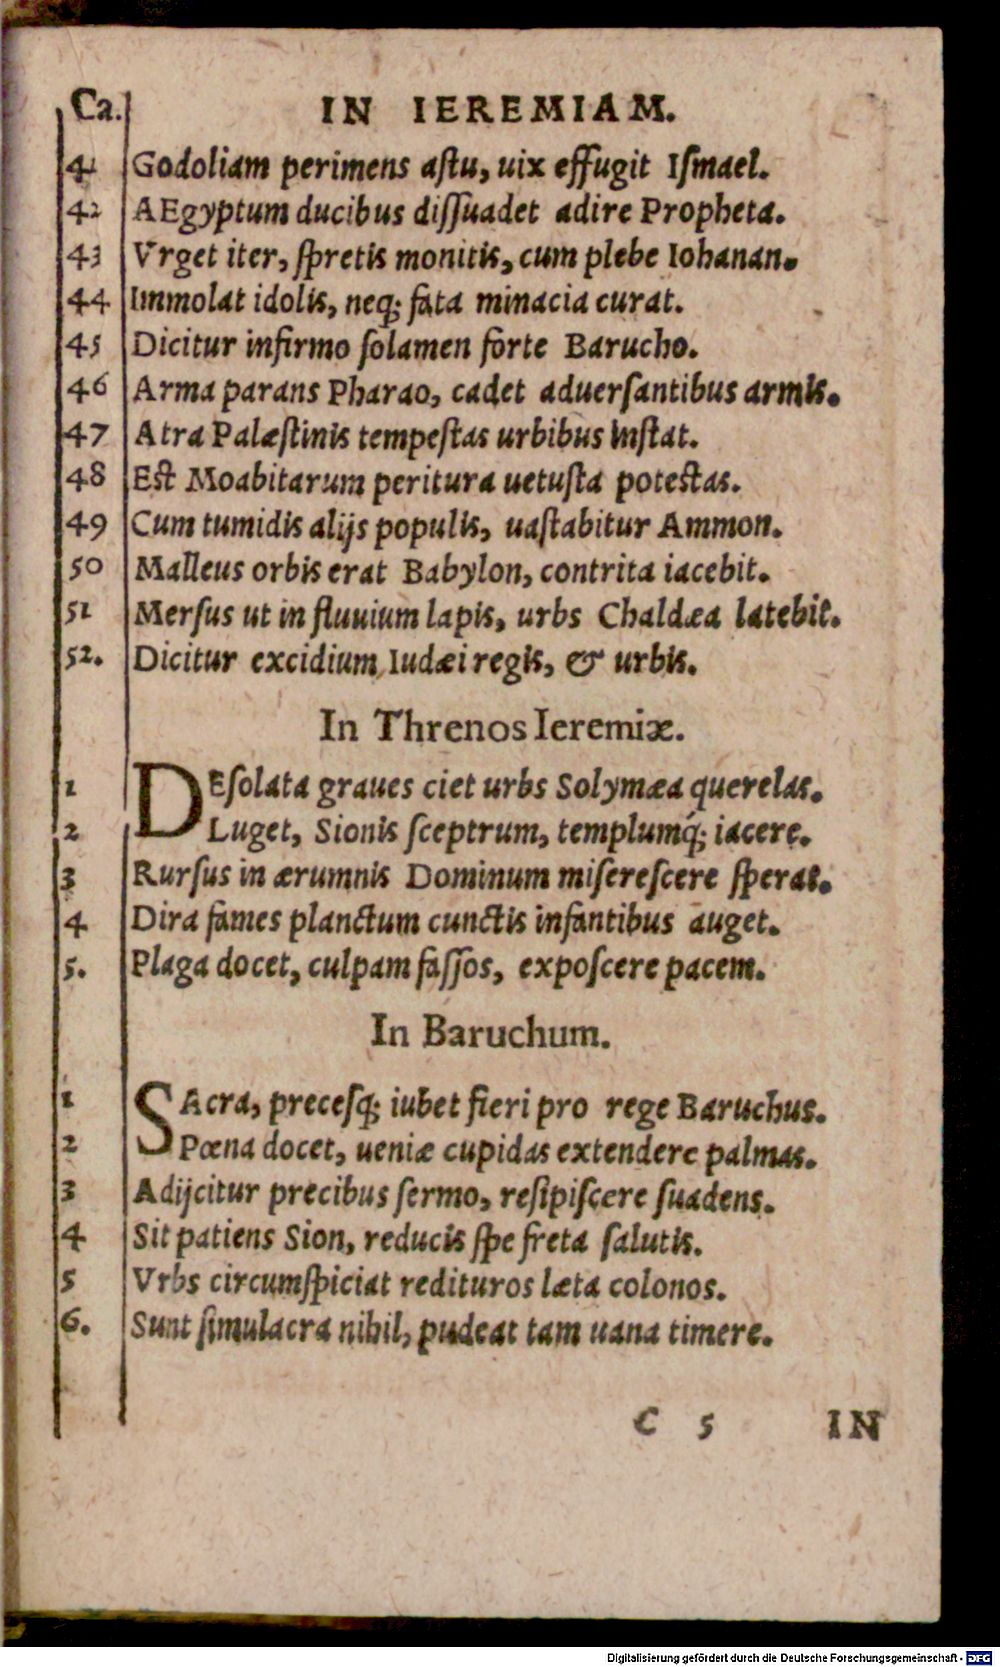 Ca. IN IEREMIAM.
41 Godoliam perimens astu, uix effugit Ismael.
42 AEgyptum ducibus dissuadet adire Propheta.
43 Vrget iter, spretis monitis, cum plebe Iohanan.
44 Immolat idolis, neq; fata minacia curat.
45 Dicitur infirmo solamen forte Barucho.
46 Arma parans Pharao, cadet aduersantibus armis.
47 Atra Palæstinis tempestas urbibus instat.
48 Est Moabitarum peritura uetusta potestas.
49 Cum tumidis alijs populis, uastabitur Ammon.
50 Malleus orbis erat Babylon, contrita iacebit.
51 Mersus ut in fluuium lapis, urbs Chaldæa latebit.
52. Dicitur excidium Iudæi regis, & urbis.
In Threnos Ieremiæ.
1 DEsolata graues ciet urbs Solymæa querelas.
2 Luget, Sionis sceptrum, templumq́; iacere.
3 Rursus in ærumnis Dominum miserescere sperat.
4 Dira fames planctum cunctis infantibus auget.
5. Plaga docet, culpam fassos, exposcere pacem.
In Baruchum.
1 SAcra, precesq; iubet fieri pro rege Baruchus.
2 Pœna docet, ueniæ cupidas extendere palmas.
3 Adijcitur precibus sermo, resipiscere suadens.
4 Sit patiens Sion, reducis spe freta salutis.
5 Vrbs circumspiciat redituros læta colonos.
6. Sunt simulacra nihil, pudeat tam uana timere.
C 5 IN
Digitalisierung gefördert durch die Deutsche Forschungsgemeinschaft - DFG